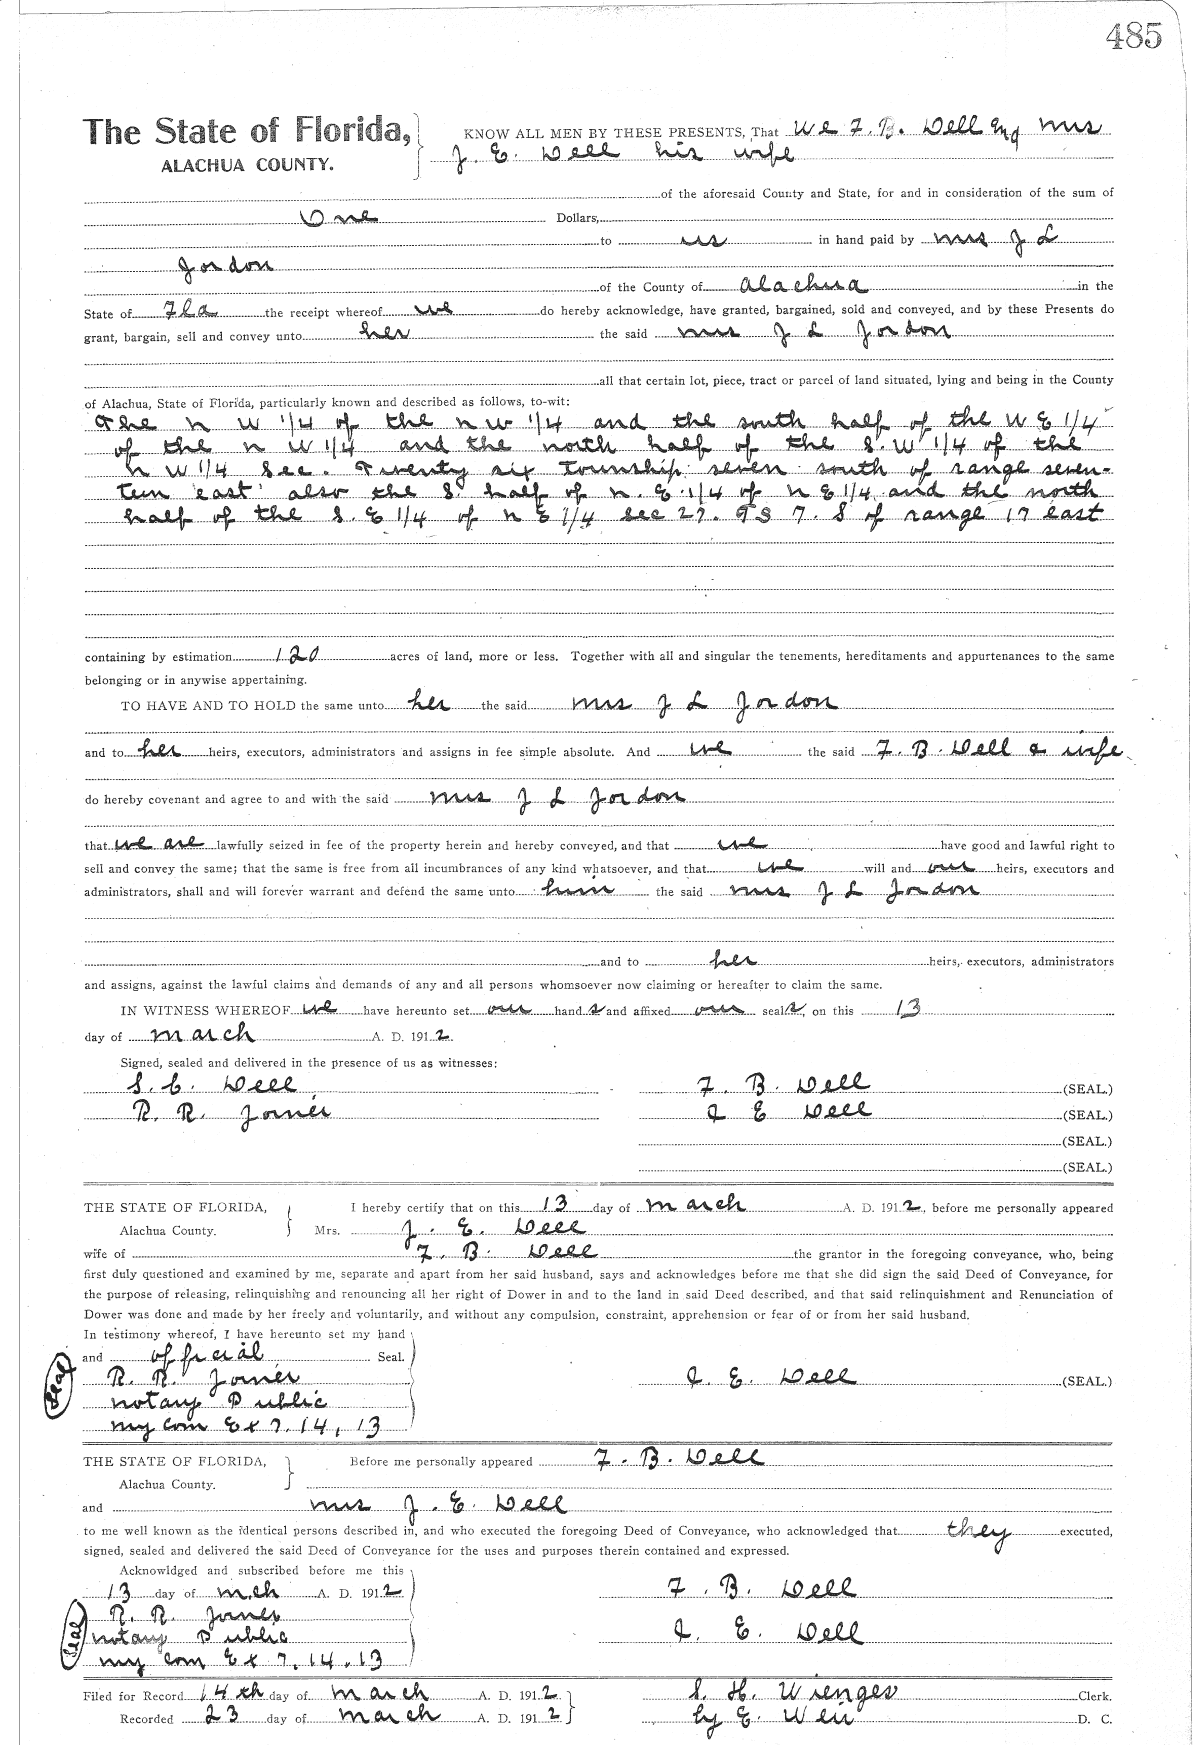 485
The State of Florida,
ALACHUA COUNTY.
KNOW ALL MEN BY THESE PRESENTS, That we F. B. Dell and mrs
J. E. Dell his wife
of the aforesaid County and State, for and in consideration of the sum of
One Dollars,
to us in hand paid by mrs J L
Jordon
of the County of Alachua in the
State of Fla the receipt whereof we do hereby acknowledge, have granted, bargained, sold and conveyed, and by these Presents do
grant, bargain, sell and convey unto her the said mrs J L Jordon
all that certain lot, piece, tract or parcel of land situated, lying and being in the County
of Alachua, State of Florida, particularly known and described as follows, to-wit:
The n W 1/4 of the n W 1/4 and the south half of the W E 1/4
of the n W 1/4 and the north half of the S. W 1/4 of the
n W 1/4 Sec. Twenty six township seven south of range seven-
teen east also the S. half of n. E 1/4 of n E 1/4 and the north
half of the S. E 1/4 of n E 1/4 sec 27. TS 7. S of range 17 east
containing by estimation 120 acres of land, more or less. Together with all and singular the tenements, hereditaments and appurtenances to the same
belonging or in anywise appertaining.
TO HAVE AND TO HOLD the same unto her the said mrs J L Jordon
and to her heirs, executors, administrators and assigns in fee simple absolute. And we the said F. B. Dell & wife
do hereby covenant and agree to and with the said mrs J L Jordon
that we are lawfully seized in fee of the property herein and hereby conveyed, and that we have good and lawful right to
sell and convey the same; that the same is free from all incumbrances of any kind whatsoever, and that we will and our heirs, executors and
administrators, shall and will forever warrant and defend the same unto him the said mrs J L Jordon
and to her heirs, executors, administrators
and assigns, against the lawful claims and demands of any and all persons whomsoever now claiming or hereafter to claim the same.
IN WITNESS WHEREOF we have hereunto set our hand s and affixed our seal s, on this 13
day of march A. D. 1912.
Signed, sealed and delivered in the presence of us as witnesses:
S. C. Dell F. B. Dell (SEAL.)
R. R. Joiner J E Dell (SEAL.)
(SEAL.)
(SEAL.)
THE STATE OF FLORIDA, I hereby certify that on this 13 day of march A. D. 1912, before me personally appeared
Alachua County. Mrs. J. E. Dell
wife of F. B. Dell the grantor in the foregoing conveyance, who, being
first duly questioned and examined by me, separate and apart from her said husband, says and acknowledges before me that she did sign the said Deed of Conveyance, for
the purpose of releasing, relinquishing and renouncing all her right of Dower in and to the land in said Deed described, and that said relinquishment and Renunciation of
Dower was done and made by her freely and voluntarily, and without any compulsion, constraint, apprehension or fear of or from her said husband.
In testimony whereof, I have hereunto set my hand
and official Seal.
Seal
R. R. Joiner J. E. Dell (SEAL.)
notary Public
my com Ex 7. 14, 13
THE STATE OF FLORIDA, Before me personally appeared F. B. Dell
Alachua County.
and mrs J. E. Dell
to me well known as the identical persons described in, and who executed the foregoing Deed of Conveyance, who acknowledged that they executed,
signed, sealed and delivered the said Deed of Conveyance for the uses and purposes therein contained and expressed.
Acknowlidged and subscribed before me this
13 day of mch A. D. 1912 F. B. Dell
R. R. Joiner
Seal
notary Public J. E. Dell
my com Ex 7. 14. 13
Filed for Record 14th day of march A. D. 1912 S. H. Wienges Clerk.
Recorded 23 day of march A. D. 1912 by E. D. C.